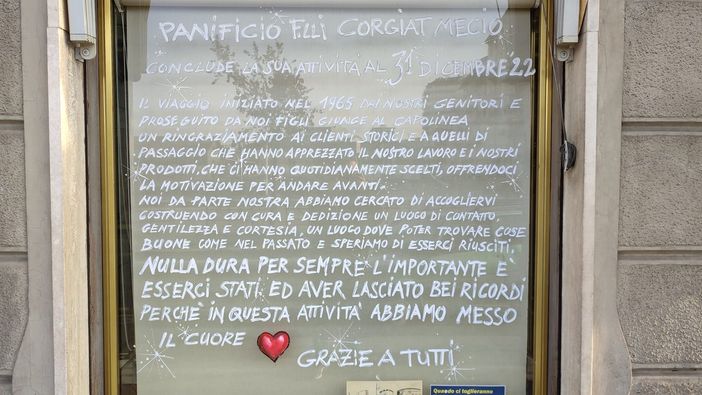 PANIFICIO F.LLI CORGIAT MECIO
CONCLUDE LA SUA ATTIVITÀ AL 31 DICEMBRE '22
IL VIAGGIO INIZIATO NEL 1965 DAI NOSTRI GENITORI E
PROSEGUITO DA NOI FIGLI GIUNGE AL CAPOLINEA
UN RINGRAZIAMENTO AI CLIENTI STORICI E A QUELLI DI
PASSAGGIO CHE HANNO APPREZZATO IL NOSTRO LAVORO E I NOSTRI
PRODOTTI, CHE CI HANNO QUOTIDIANAMENTE SCELTI, OFFRENDOCI
LA MOTIVAZIONE PER ANDARE AVANTI.
NOI DA PARTE NOSTRA ABBIAMO CERCATO DI ACCOGLIERVI
COSTRUENDO CON CURA E DEDIZIONE UN LUOGO DI CONTATTO,
GENTILEZZA E CORTESIA, UN LUOGO DOVE POTER TROVARE COSE
BUONE COME NEL PASSATO E SPERIAMO DI ESSERCI RIUSCITI.
NULLA DURA PER SEMPRE L'IMPORTANTE È
ESSERCI STATI ED AVER LASCIATO BEI RICORDI
PERCHÈ IN QUESTA ATTIVITÀ ABBIAMO MESSO
IL CUORE
GRAZIE A TUTTI
Quando ci toglieranno